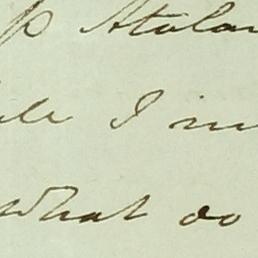 p Atalan
I in
what do